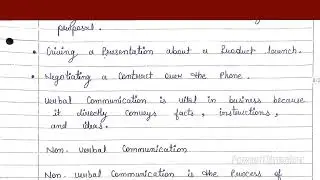 proposal.
• Giving a Presentation about a Product launch.
• Negotiating a Contract over the Phone.
Verbal Communication is vital in business because
it directly conveys facts, instructions,
and ideas.
Non-Verbal Communication
Non-verbal communication is the Process of
PowerDirector